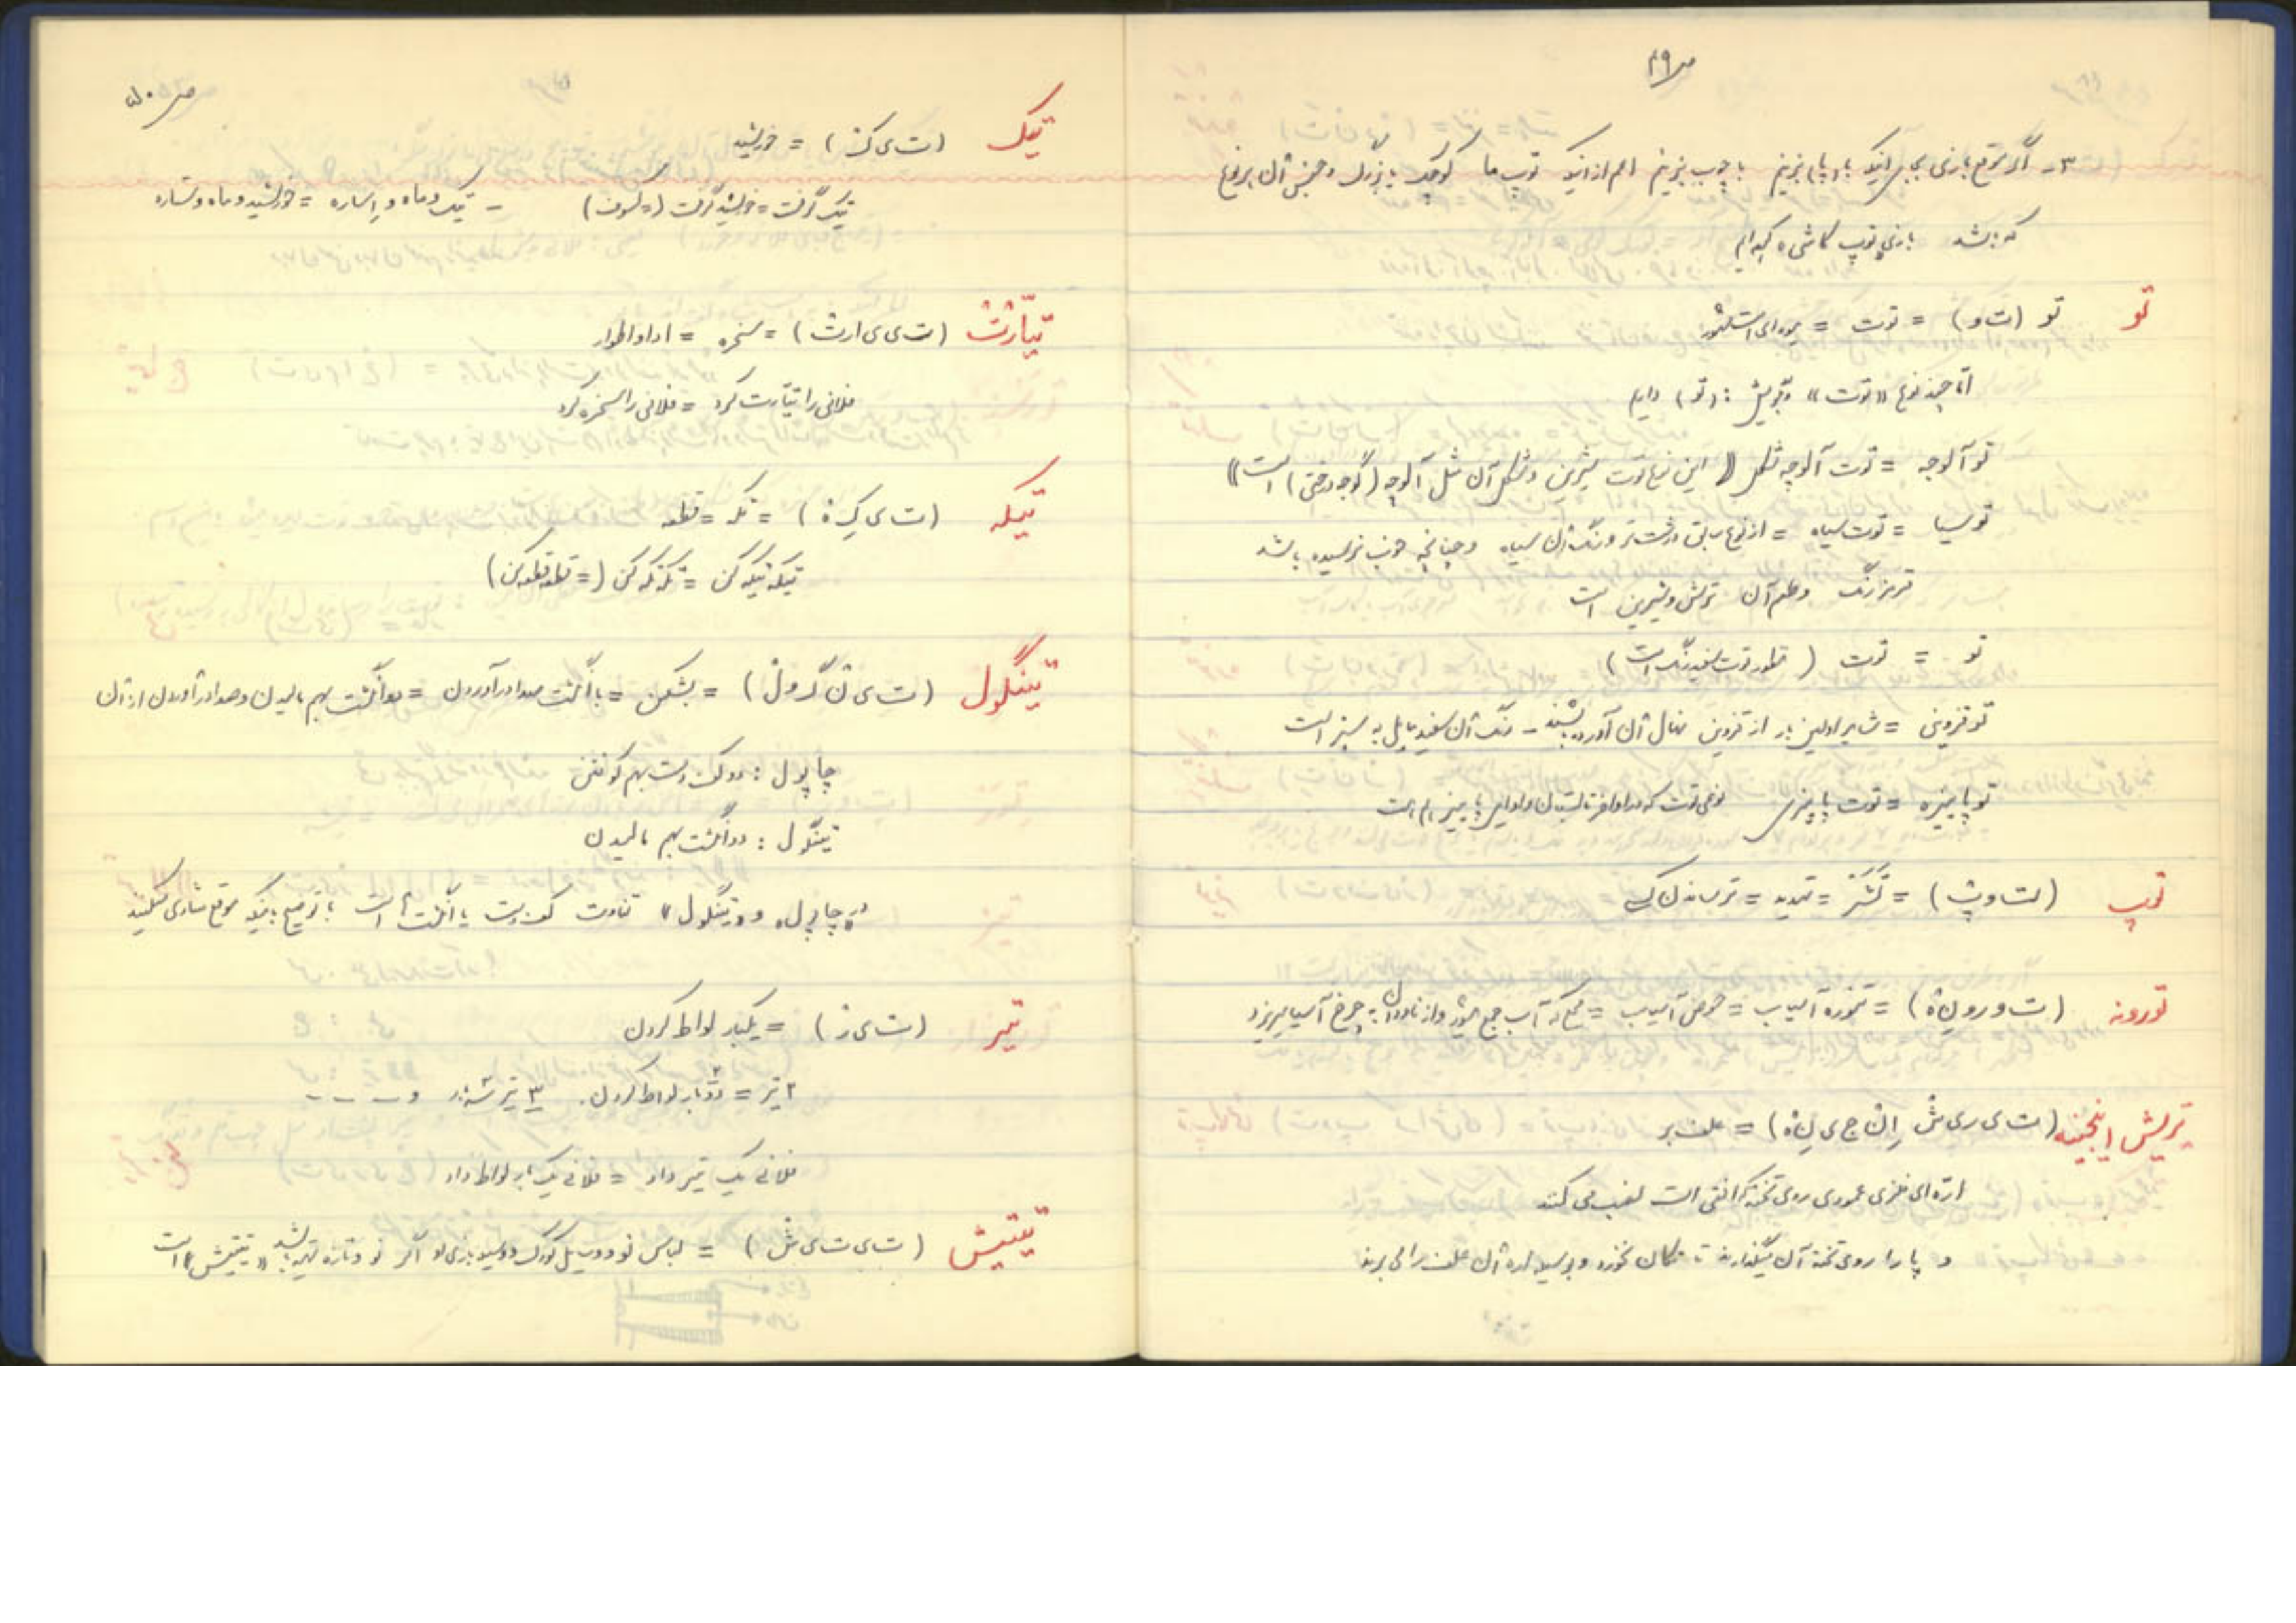 ص ۴۹
۳- اگر موقع بازی بجای اینکه با پا بزنیم با چوب بزنیم اعم از اینکه توپ ما کوچک یا بزرگ و جنس آن از هر نوع
که باشد بازی توپ کاشی کرده‌ایم
تو تو (ت و) = توت = میوه‌ای است مشهور
اما چند نوع «توت» بگویش: (تو) داریم
تو آلوچه = توت آلوچه شکل (این نوع توت شیرین و شکل آن مثل آلوچه (گوجه درختی) است)
تو سیا = توت سیاه = از نوع سابق درشت‌تر و رنگ آن سیاه و چنانچه خوب نرسیده باشد
قرمز رنگ و طعم آن ترش و شیرین است
تو = توت (منظور توت سفید رنگ است)
تو قزوینی = شاید اولین بار از قزوین نهال آن آورده باشند - رنگ آن سفید مایل به سبز است
تو پاییزه = توت پاییزی نوعی توت که در اواخر تابستان و اوایل پاییز
توپ (ت و پ) = تَشَر = تهدید = ترساندن کسی
تورونه (ت و رو نِ ه) = تنوره آسیاب = حوض آسیاب = که آب جمع میشود و از ناودان به چرخ آسیا میریزد
تریش اینجینه (ت ی ری ش اِن ج ی نِ ه) = علف بر
اره‌ای فلزی عمودی روی تخته که افقی است نصب می کنند
و پا را روی تخته آن میگذارند تا تکان نخورد و بوسیله اره آن علف را می برند
ص ۵۰
تیک (ت ی ک) = خورشید
تیک گرفت = خورشید گرفت (= کسوف) - تیک و ماه و اِساره = خورشید و ماه و ستاره
تیّارت (ت ی ی ا رت) = مسخره = ادا و اطوار
فلانی را تیّارت کرد = فلانی را مسخره کرد
تیکه (ت ی کِ ه) = تکه = قطعه
تیکه تیکه کن = تکه تکه کن (= قطعه قطعه کن)
تینگول (ت ی ن گ و ل) = بشکن = با انگشت صدا درآوردن = دو انگشت بهم مالیدن و صدا درآوردن از آن
چاپول: دو کف دست بهم کوفتن
تینگول: دو انگشت بهم مالیدن
«چاپول» و «تینگول» تفاوت کف دست با انگشت است با توضیح اینکه موقع شادی میکنند
تیر (ت ی ر) = یکبار لواط کردن
۲ تیر = دوبار لواط کردن. ۳ تیر و - - - -
فلانی یک تیر داد = فلانی یک بار لواط داد
تیتیش (ت ی ت ی ش) = لباس نو و وسایل کودک و وسیله بازی او اگر نو و تازه تهیه باشد «تیتیش» است